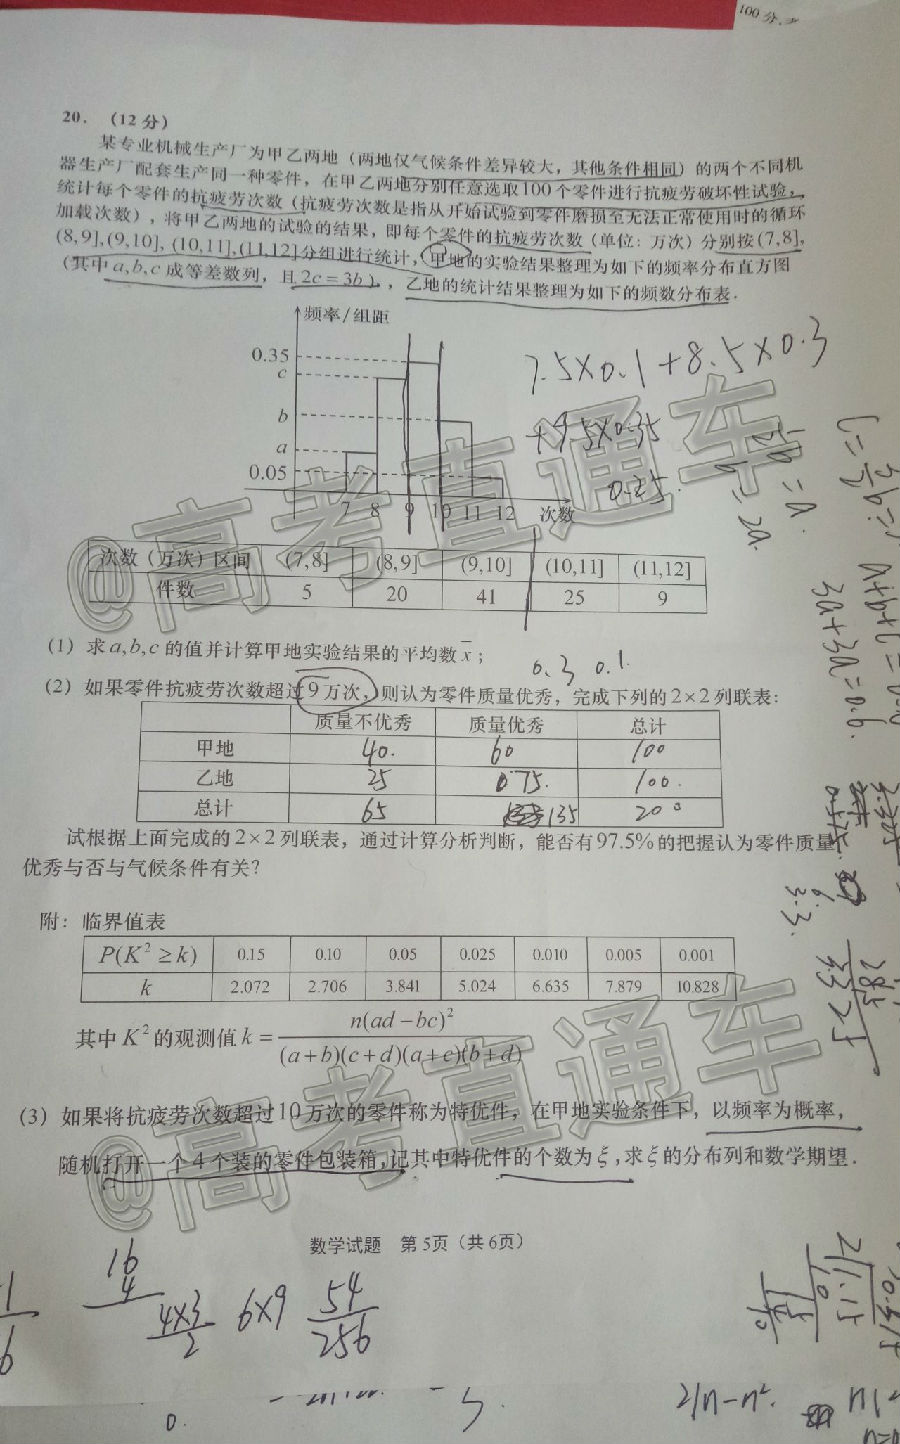 100分
20. (12分)
某专业机械生产厂为甲乙两地（两地仅气候条件差异较大，其他条件相同）的两个不同机
器生产厂配套生产同一种零件，在甲乙两地分别任意选取100个零件进行抗疲劳破坏性试验，
统计每个零件的抗疲劳次数（抗疲劳次数是指从开始试验到零件磨损至无法正常使用时的循环
加载次数），将甲乙两地的试验的结果，即每个零件的抗疲劳次数（单位：万次）分别按(7,8],
(8,9],(9,10], (10,11],(11,12]分组进行统计，甲地的实验结果整理为如下的频率分布直方图
（其中a,b,c成等差数列，且2c=3b），乙地的统计结果整理为如下的频数分布表.
频率/组距
0.35
c
b
a
0.05
7 8 9 10 11 12 次数
7.5×0.1+8.5×0.3
+9.5×0.35
0.25.
次数（万次）区间 (7,8] (8,9] (9,10] (10,11] (11,12]
件数 5 20 41 25 9
(1) 求a,b,c的值并计算甲地实验结果的平均数x̄；
0.3 0.1
(2) 如果零件抗疲劳次数超过9万次，则认为零件质量优秀，完成下列的2×2列联表：
质量不优秀 质量优秀 总计
甲地 40. 60 100
乙地 25 75. 100.
总计 65 135 200
试根据上面完成的2×2列联表，通过计算分析判断，能否有97.5%的把握认为零件质量
优秀与否与气候条件有关?
附：临界值表
P(K²≥k) 0.15 0.10 0.05 0.025 0.010 0.005 0.001
k 2.072 2.706 3.841 5.024 6.635 7.879 10.828
其中K²的观测值k= n(ad−bc)² / (a+b)(c+d)(a+c)(b+d)
(3) 如果将抗疲劳次数超过10万次的零件称为特优件，在甲地实验条件下，以频率为概率，
随机打开一个4个装的零件包装箱,记其中特优件的个数为ξ,求ξ的分布列和数学期望.
数学试题 第5页（共6页）
16
4
4×3
2
6×9
54
256
21n−n²
@高考直通车
@高考直通车
3a+3a=0.6.